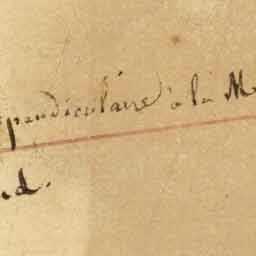 pendiculaire à la M
ud.